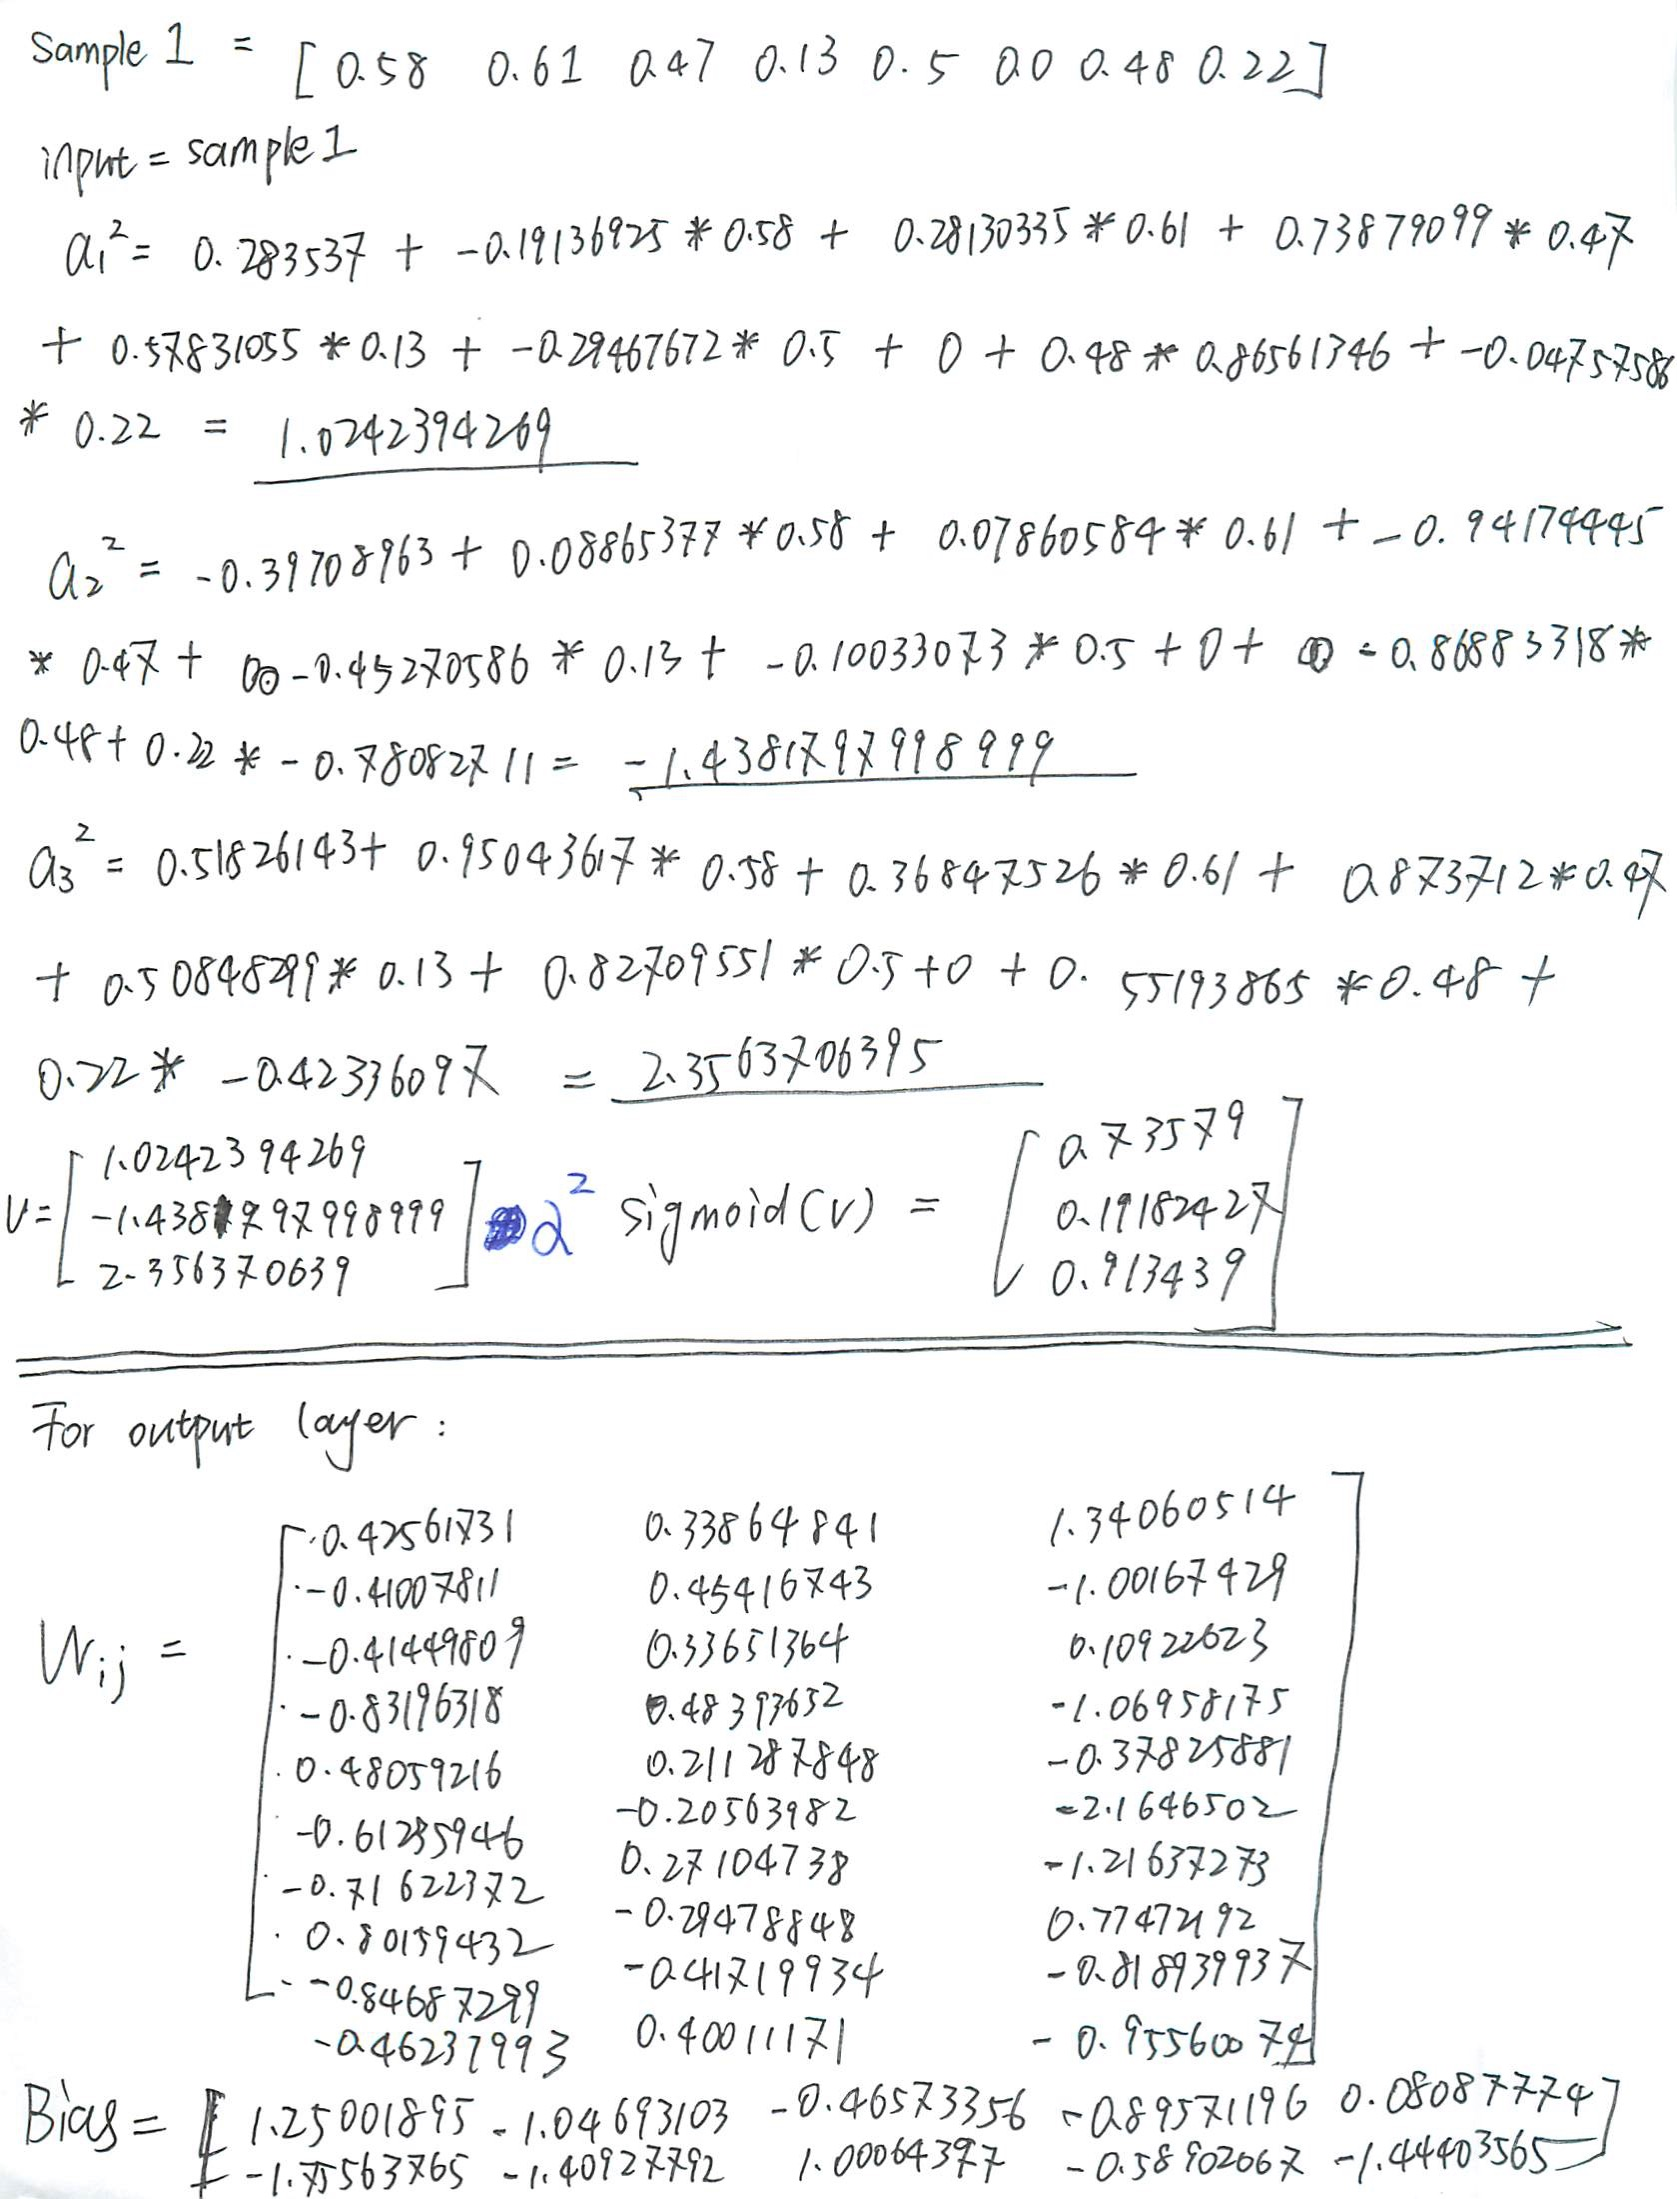 Sample 1 = [ 0.58 0.61 0.47 0.13 0.5 0.0 0.48 0.22]
input = sample 1
a₁² = 0.283537 + -0.19136925 * 0.58 + 0.28130335 * 0.61 + 0.73879099 * 0.47
+ 0.57831055 * 0.13 + -0.29467672 * 0.5 + 0 + 0.48 * 0.86561346 + -0.04757586
* 0.22 = 1.0242394269
a₂² = -0.39708963 + 0.08865377 * 0.58 + 0.07860584 * 0.61 + -0.94174445
* 0.47 + -0.45270586 * 0.13 + -0.10033073 * 0.5 + 0 + -0.86883318 *
0.48 + 0.22 * -0.78082711 = -1.4381797998999
a₃² = 0.51826143 + 0.95043617 * 0.58 + 0.36847526 * 0.61 + 0.873712 * 0.47
+ 0.50848299 * 0.13 + 0.82709551 * 0.5 + 0 + 0.55193865 * 0.48 +
0.22 * -0.42336097 = 2.3563706395
V = [ 1.0242394269
-1.43817997998999
2.356370639 ] a² sigmoid(v) = [ 0.73579
0.19182427
0.913439 ]
For output layer:
Wij = [ 0.42561731 0.33864841 1.34060514
-0.41007811 0.45416743 -1.00167429
-0.41449809 0.33651364 0.10922623
-0.83196318 0.48393652 -1.06958175
0.48059216 0.211287848 -0.37825881
-0.61235946 -0.20563982 -2.1646502
-0.71622372 0.27104738 -1.21637273
0.80159432 -0.29478848 0.77472192
-0.84687299 -0.41719934 -0.818939937
-0.46237993 0.40011171 -0.95560074 ]
Bias = [ 1.25001895 -1.04693103 -0.46573356 -0.89571196 0.08087774
-1.75563765 -1.40927792 1.00064397 -0.58902667 -1.44403565 ]